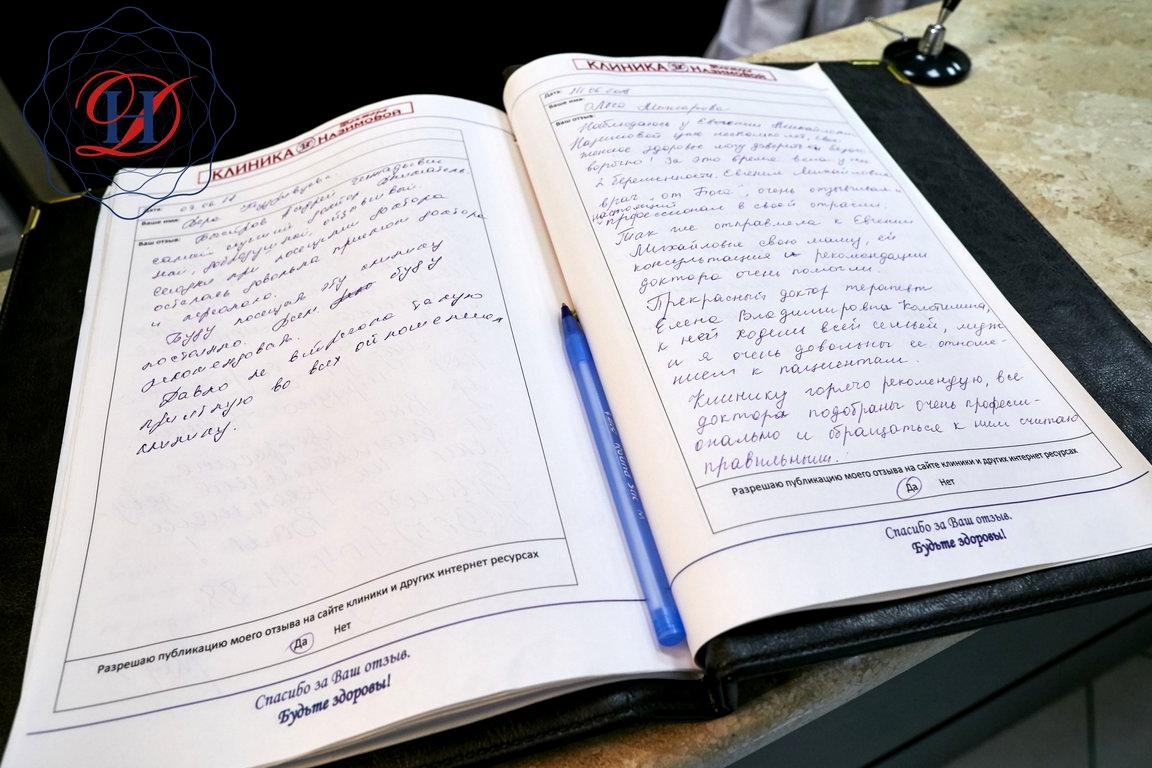 КЛИНИКА Доктора НАЗИМОВОЙ
Дата:
Ваше имя: Вера
Ваш отзыв:
самый лучший доктор
ной, добродушной, отзывчивый.
Сегодня при посещении доктора
осталась довольна приемом доктора
и персонала.
Буду посещать эту клинику
постоянно. Всем буду
рекомендовать.
Давно не встречала такую
приятную во всех отношениях
клинику.
Разрешаю публикацию моего отзыва на сайте клиники и других интернет ресурсах
Да Нет
Спасибо за Ваш отзыв.
Будьте здоровы!
КЛИНИКА Доктора НАЗИМОВОЙ
Дата:
Ваше имя:
Ваш отзыв: Наблюдаюсь у Евгении Михайловны
Назимовой уже несколько лет, свое
женское здоровье могу доверить ей безого-
ворочно! За это время вела у нее
2 беременности. Евгения Михайловна
врач "от Бога", очень отзывчивая и
настоящий профессионал в своей отрасли.
Так же отправляла к Евгении
Михайловне свою маму, ей
консультация и рекомендации
доктора очень помогли.
Прекрасный доктор терапевт
Елена Владимировна
к ней ходим всей семьёй, муж
и я очень довольны ее отноше-
нием к пациентам.
Клинику горячо рекомендую, все
доктора подобраны очень професси-
онально и обращаться к ним считаю
правильным.
Разрешаю публикацию моего отзыва на сайте клиники и других интернет ресурсах
Да Нет
Спасибо за Ваш отзыв.
Будьте здоровы!